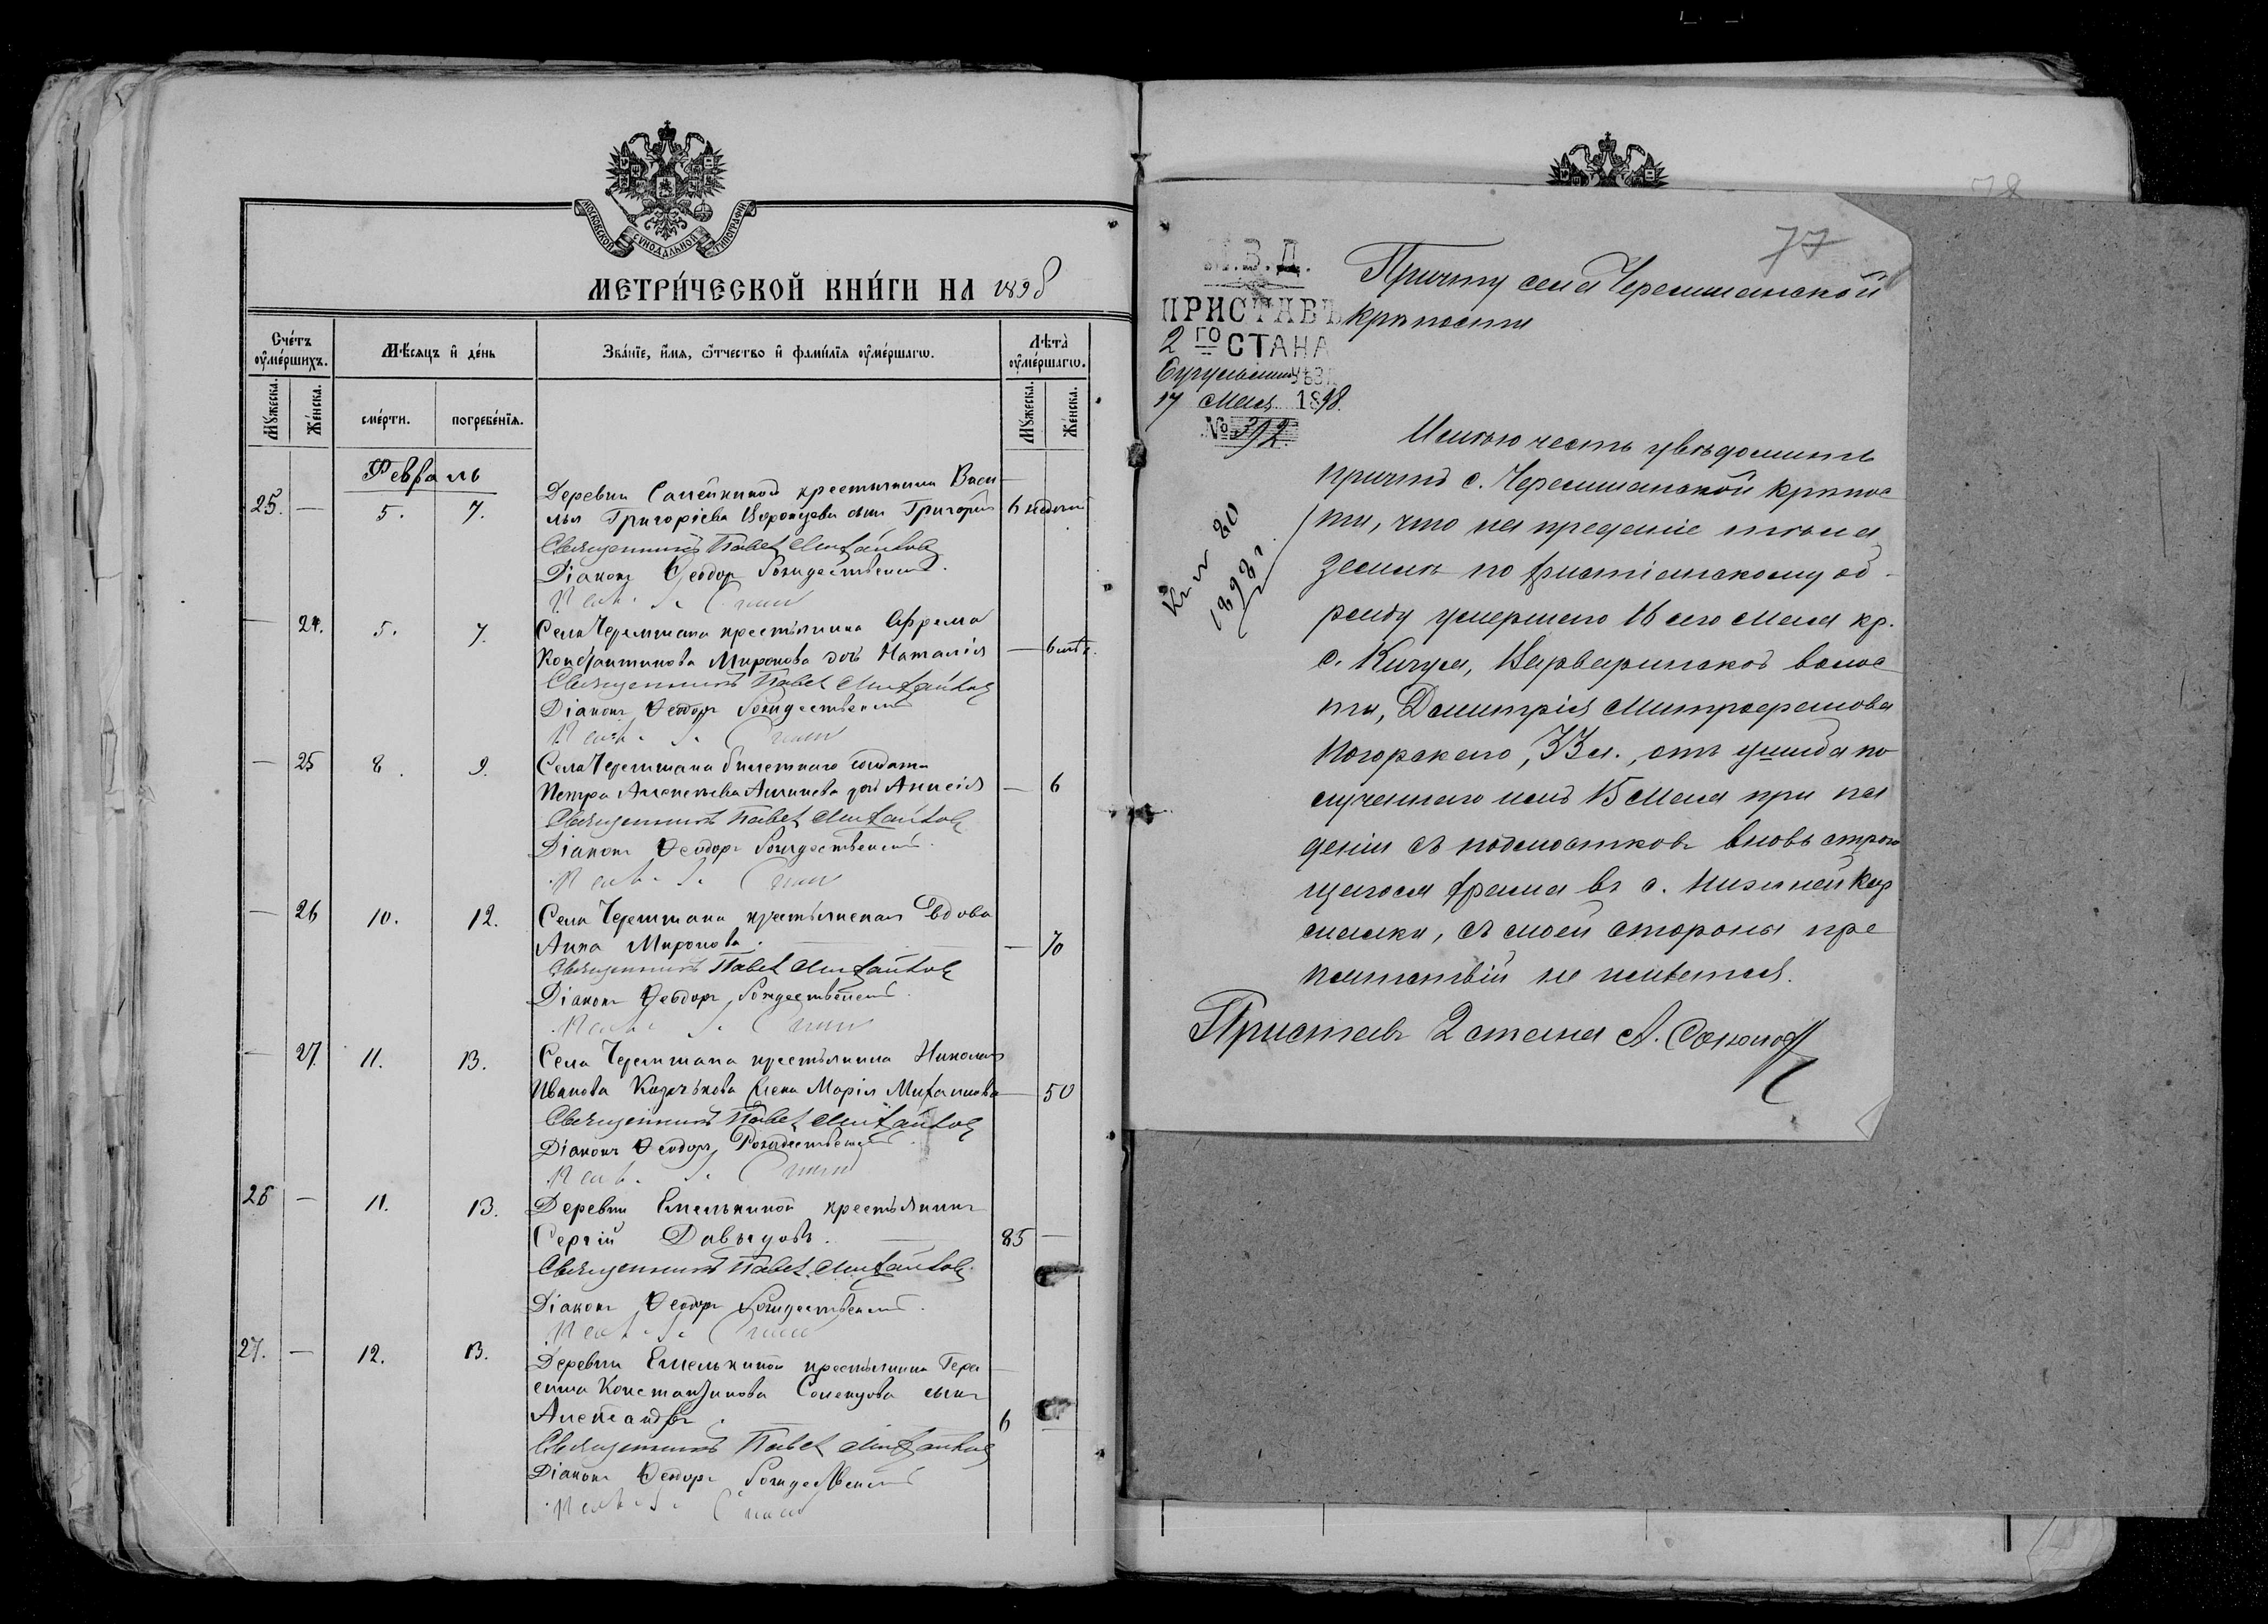 МОСКОВСКОЙ СѴНОДАЛЬНОЙ ТИПОГРАФІИ
МЕТРИ́ЧЕСКОЙ КНИ́ГИ НА 1898
Сче́тъ ᲂу҆ме́ршихъ.
Мѣ́сяцъ и҆ де́нь
Зва́нїе, и҆́мя, ѻ҆́тчество и҆ фами́лїя ᲂу҆ме́ршагѡ.
Лѣта̀ ᲂу҆ме́ршагѡ.
Мꙋ́жеска.
Же́нска.
сме́рти.
погребе́нїя.
Мꙋ́жеска.
Же́нска.
Февраль
25. — 5. 7. Деревни крестьянина Васи
лья Григорiева Воронцова сынъ Григорій 6 недѣль
Священникъ Павелъ Михайлов
Дiаконъ Ѳеодоръ Рождественскій.
— 24. 5. 7. Села Черемшана крестьянина Ефрема
Константинова Миронова дочь Наталія — 6
Священникъ Павелъ Михайлов
Дiаконъ Ѳеодоръ Рождественскій
— 25 8. 9. Села Черемшана билетнаго солдата
Петра дочь Анисія — 6
Священникъ Павелъ Михайлов
Дiаконъ Ѳеодоръ Рождественскій.
— 26 10. 12. Села Черемшана крестьянская вдова
Анна Миронова. — 70
Священникъ Павелъ Михайлов
Дiаконъ Ѳеодоръ Рождественскій.
— 27. 11. 13. Села Черемшана крестьянина Николая
Иванова жена Марія Михайлова — 50
Священникъ Павелъ Михайлов
Дiаконъ Ѳеодоръ Рождественскій.
26 — 11. 13. Деревни Емелькиной крестьянинъ
Сергій Давыдовъ. 85 —
Священникъ Павелъ Михайлов
Дiаконъ Ѳеодоръ Рождественскій.
27. — 12. 13. Деревни Емелькиной крестьянина Гера
сима Константинова сынъ
Александръ. 6 —
Священникъ Павелъ Михайлов
Дiаконъ Ѳеодоръ Рождественскій
77
М.В.Д.
ПРИСТАВЪ
2 ГО СТАНА
Бугульмин УѢЗД
17 Мая 1898.
№ 312
Причту села Черемшанской
крѣпости
1898 г.
Имѣю честь увѣдомить
причтъ с. Черемшанской крѣпос
ти, что на преданіе тѣла
землѣ по христіанскому об-
ряду умершаго 16 сего Мая кр.
с. Кичуя, Варваринской волос
ти, Димитрія Митрофанова
Погорскаго, 33 л., отъ ушиба по
лученнаго имъ 15 Мая при па
деніи съ подмостковъ вновь строю
щагося храма въ с. Нижней Кар
малкѣ, съ моей стороны пре
пятствій не имѣется.
Приставъ 2 стана А.